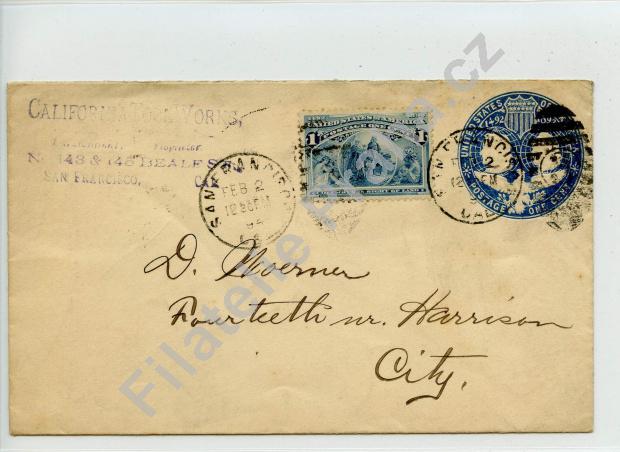 CALIFORNIA TOOL WORKS,
143 & 145 BEALE ST.
SAN FRANCISCO,
SAN FRANCISCO
FEB 2
12 30 PM
94
1492
UNITED STATES OF AMERICA
POSTAGE ONE CENT
1
1
IN SIGHT OF LAND
SAN FRANCISCO
2
CAL
UNITED STATES OF
1492
POSTAGE ONE CENT
D. Moerner
Fourteeth nr. Harrison
City.
Filatelie Praha.cz